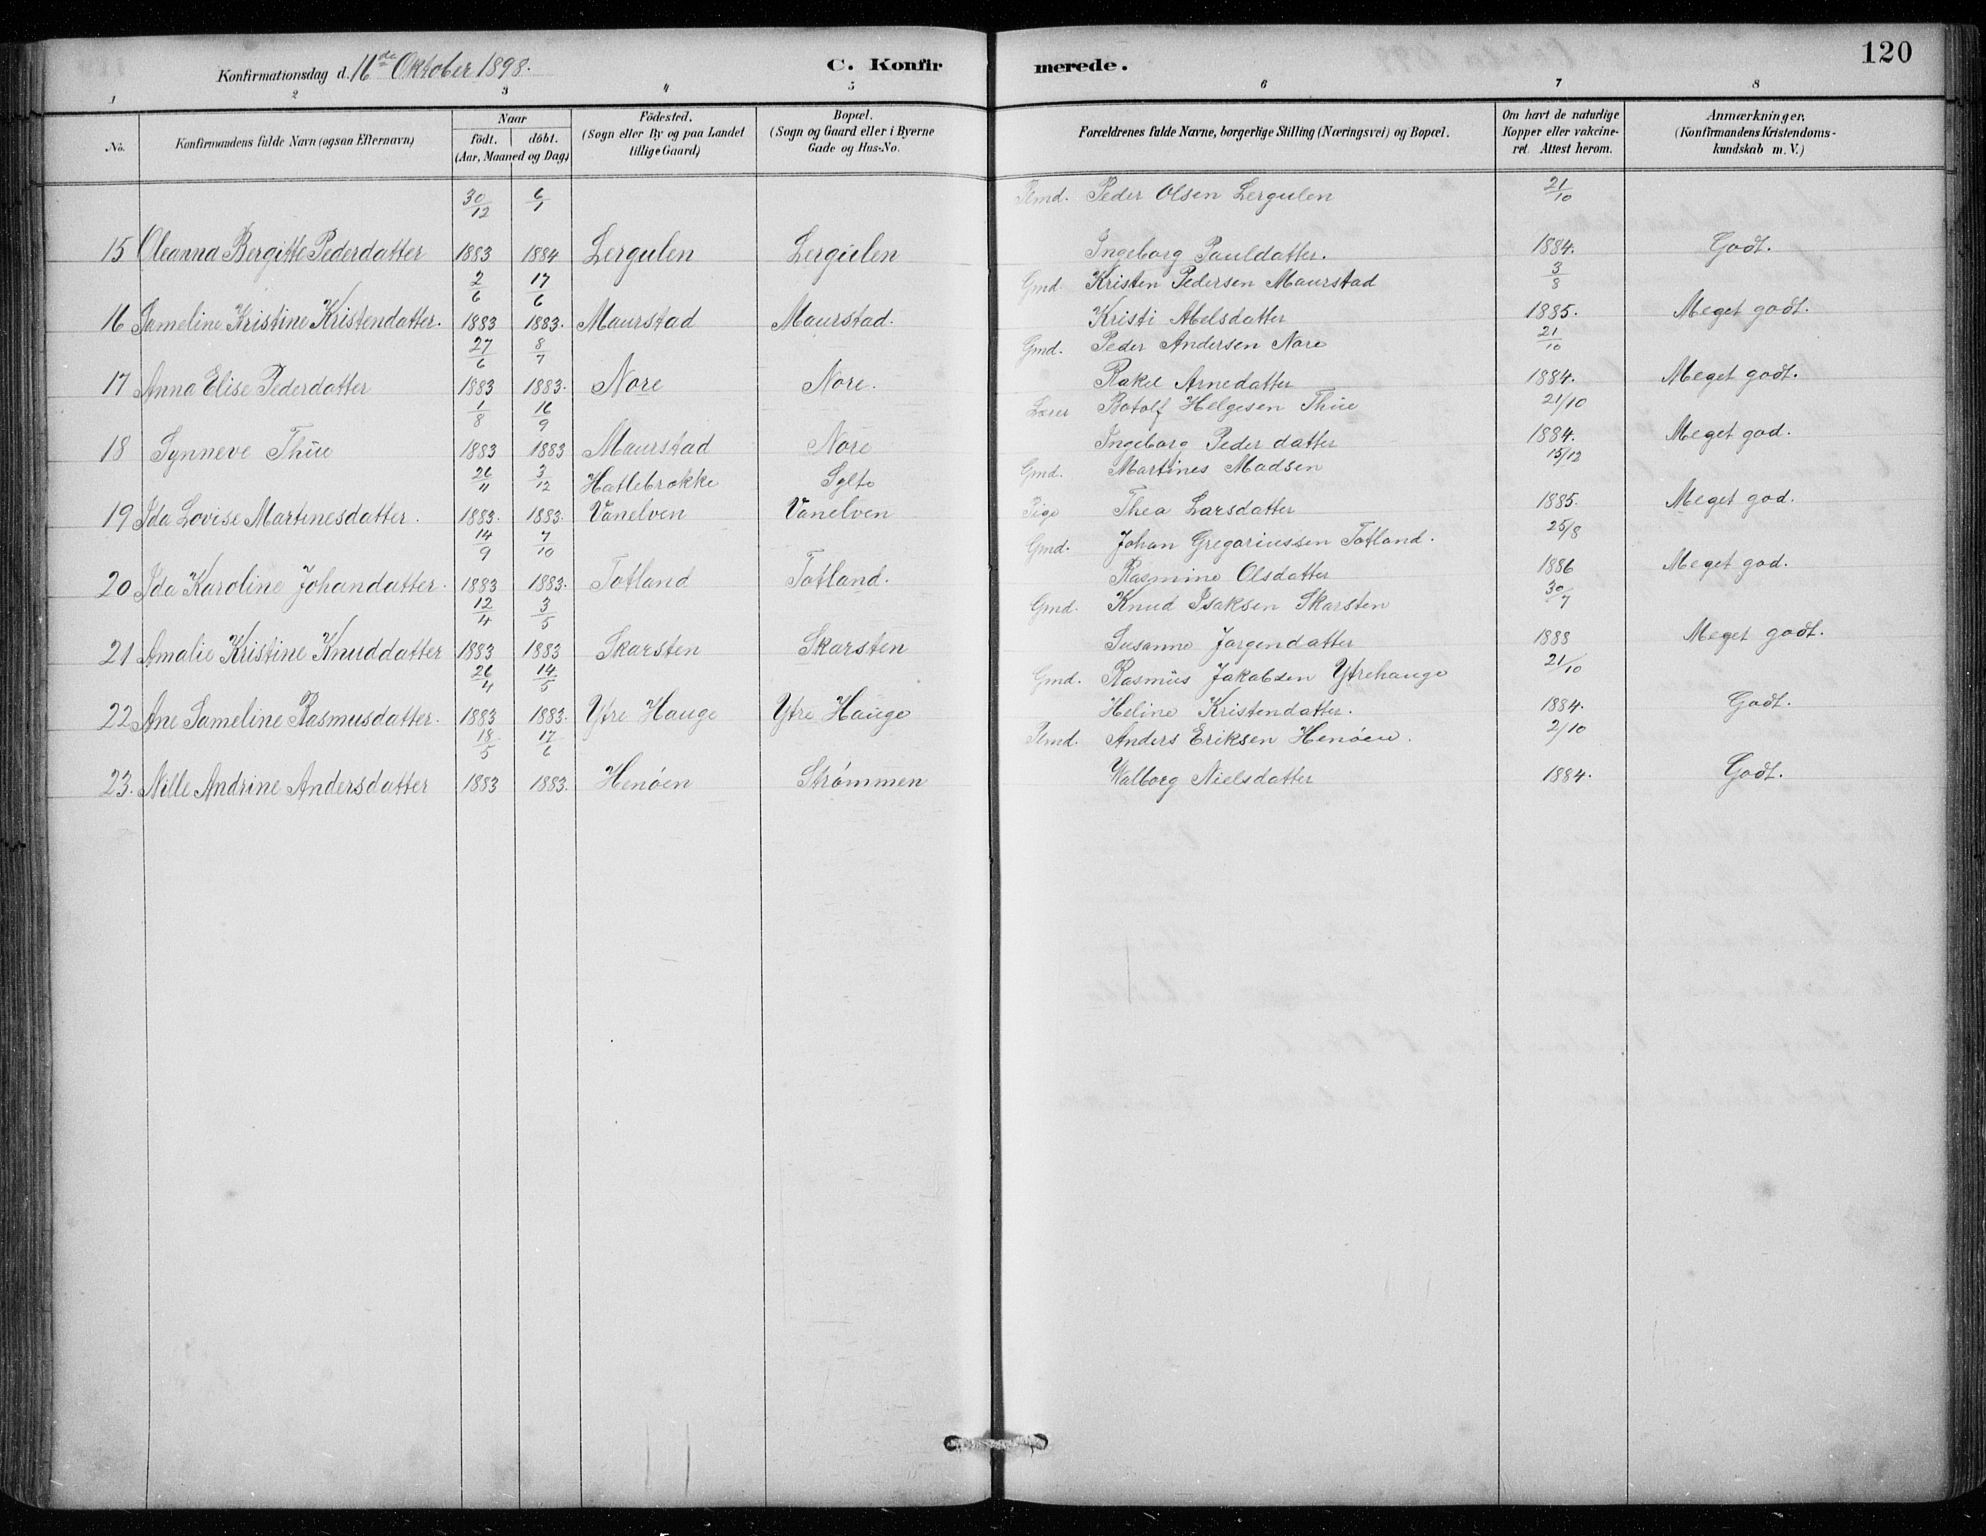 Konfirmationsdag d. 16de Oktober 1898.
C. Konfirmerede.
120
1 2 3 4 5 6 7 8
No. Konfirmandens fulde Navn (ogsaa Efternavn) Naar födt. döbt. (Aar, Maaned og Dag) Födested. (Sogn eller By og paa Landet tillige Gaard) Bopæl. (Sogn og Gaard eller i Byerne Gade og Hus-No. Forældrenes fulde Navne, borgerlige Stilling (Næringsvei) og Bopæl. Om havt de naturlige Kopper eller vakcineret. Attest herom. Anmærkninger, (Konfirmandens Kristendomskundskab m. V.)
30/12 6/1 Plmd. Peder Olsen Lergulen 21/10
15 Oleanna Bergitte Pederdatter 1883 1884 Lergulen Lergulen Ingeborg Pauldatter. 1884. Godt.
2/6 17/6 Gmd. Kristen Pedersen Maurstad 3/8
16 Jameline Kristine Kristendatter. 1883 1883. Maurstad Maurstad. Kristi Abelsdatter 1885. Meget godt.
27/6 8/7 Gmd. Peder Andersen Nore 21/10
17 Anna Elise Pederdatter 1883 1883. Nore Nore. Rakel Arnedatter 1884. Meget godt.
1/8 16/9 Lærer Botolf Helgesen Thue 21/10
18 Synneve Thue 1883 1883 Maurstad Nore Ingeborg Pederdatter 1884. Meget god.
26/11 3/12 Hatlebrekke Sylte Gmd. Martines Madsen 15/12
19 Ida Lovise Martinesdatter. 1883. 1883. Vanelven Vanelven Pige Thea Larsdatter 1885. Meget god.
14/9 7/10 Gmd. Johan Gregoriussen Totland. 25/8
20 Ida Karoline Johandatter. 1883 1883. Totland Totland. Rasmine Olsdatter 1886 Meget god.
12/4 3/5 Gmd. Knud Isaksen Skarsten 30/7
21 Amalie Kristine Knuddatter 1883 1883 Skarsten Skarsten Susanne Jørgendatter 1888 Meget godt.
26/4 14/5 Gmd. Rasmus Jakobsen Ytrehauge 21/10
22 Ane Jameline Rasmusdatter. 1883 1883. Ytre Hauge Ytre Hauge Heline Kristendatter. 1884. Godt.
18/5 17/6 Plmd. Anders Eriksen Henöen. 2/10
23. Nille Andrine Andersdatter 1883 1883. Henöen Strømmen Walborg Nielsdatter 1884. Godt.